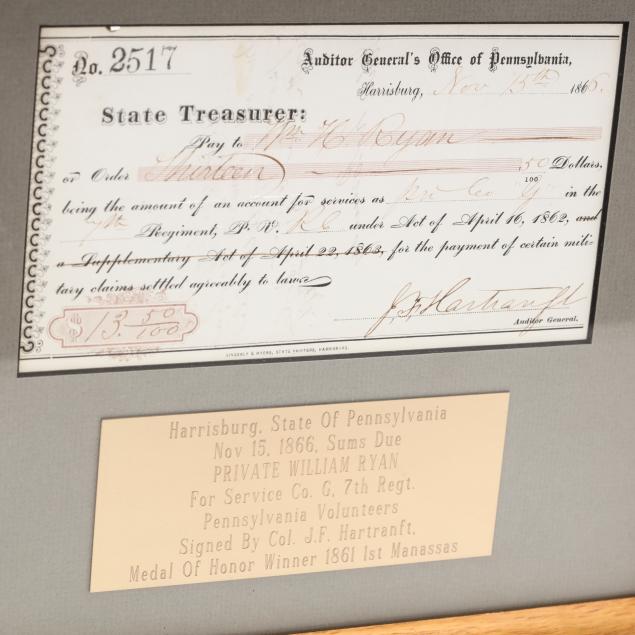 No. 2517
Auditor General's Office of Pennsylvania,
Harrisburg, Nov 15th 1866.
State Treasurer:
Pay to Wm H Ryan
or Order Thirteen 50/100 Dollars,
being the amount of an account for services as in the
7th Regiment, P. V. under Act of April 16, 1862, and
a Supplementary Act of April 22, 1863, for the payment of certain mili-
tary claims settled agreeably to law.
$13 50/100
J F Hartranft
Auditor General.
SINGERLY & MYERS, STATE PRINTERS, HARRISBURG.
Harrisburg, State Of Pennsylvania
Nov 15, 1866, Sums Due
PRIVATE WILLIAM RYAN
For Service Co. G, 7th Regt.
Pennsylvania Volunteers
Signed By Col. J.F. Hartranft,
Medal Of Honor Winner 1861 1st Manassas